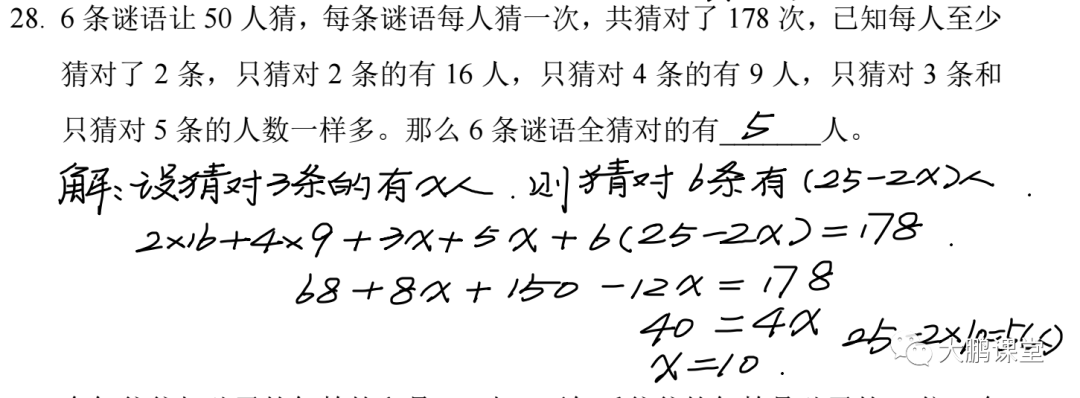 28. 6 条谜语让 50 人猜，每条谜语每人猜一次，共猜对了 178 次，已知每人至少
猜对了 2 条，只猜对 2 条的有 16 人，只猜对 4 条的有 9 人，只猜对 3 条和
只猜对 5 条的人数一样多。那么 6 条谜语全猜对的有 5 人。
解：设猜对3条的有x人．则猜对6条有(25-2x)人．
2×16+4×9+3x+5x+6(25-2x)=178．
68+8x+150-12x=178
40=4x
x=10．
25-2×10=5(人)
大鹏课堂